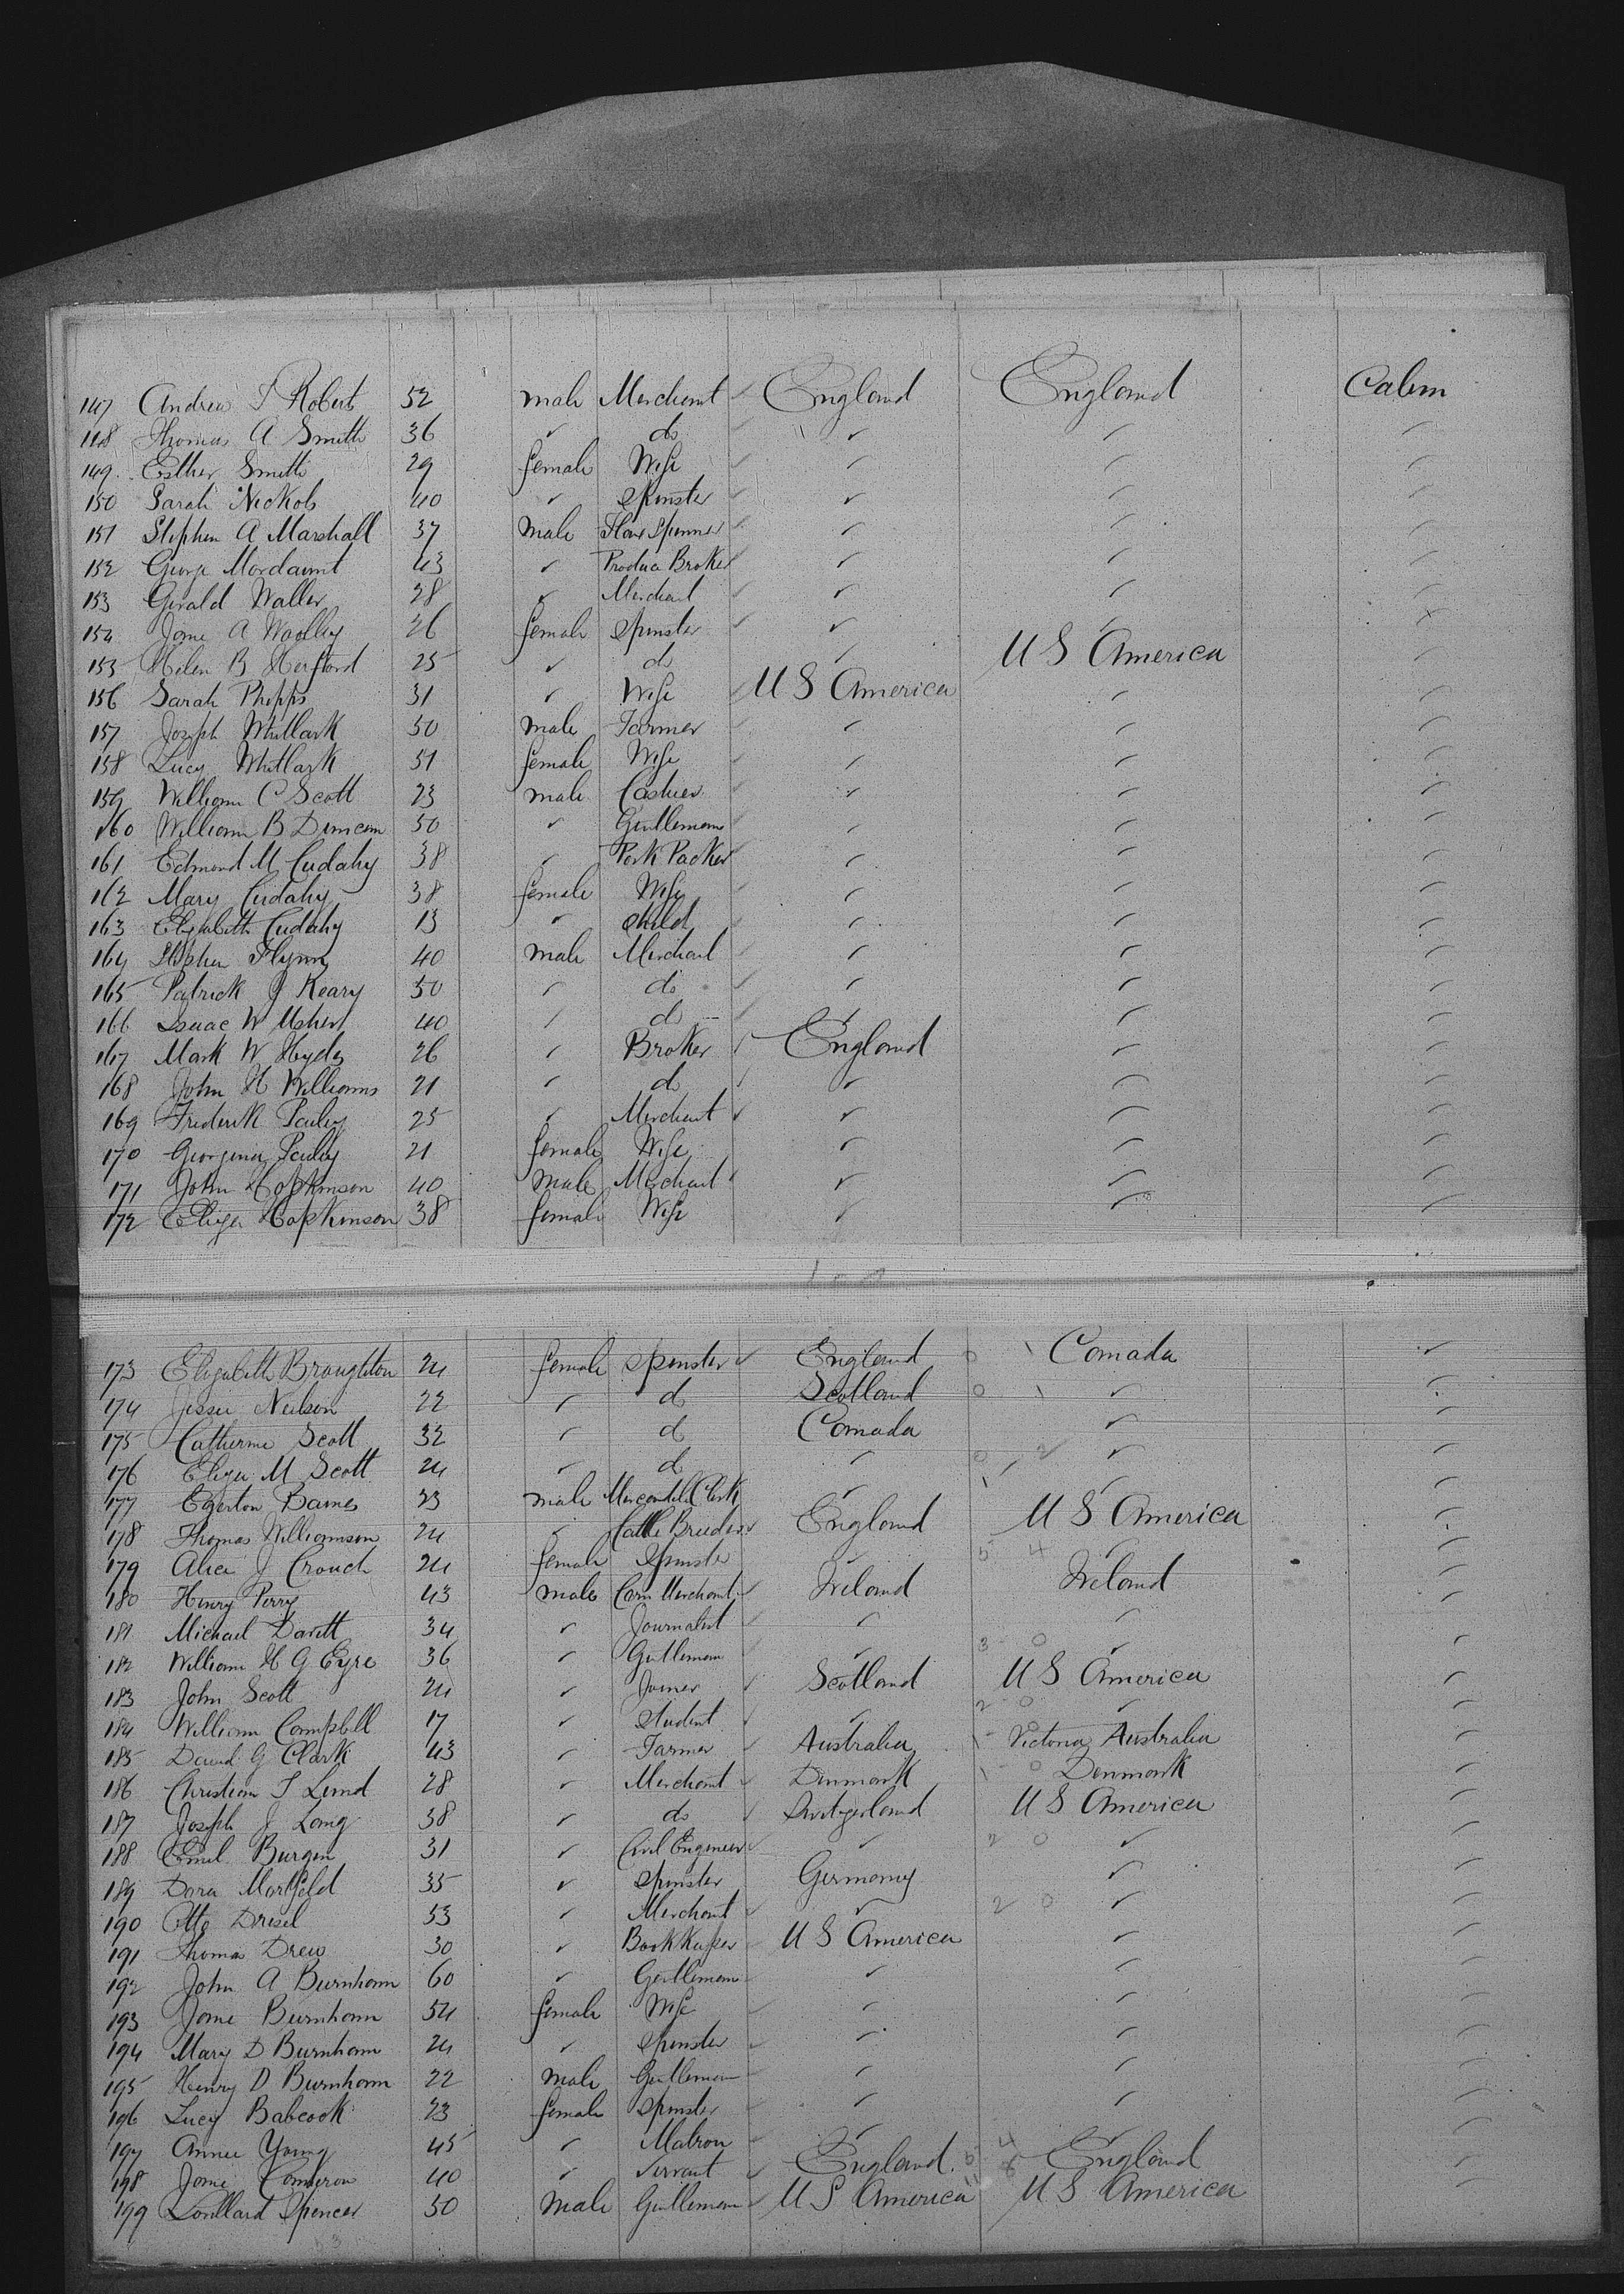 147 Andrew S Roberts 52 male Merchant ✓ England England Cabin
148 Thomas A Smith 36 ✓ do ✓ ✓ ✓ ✓
149 Esther Smith 29 female Wife ✓ ✓ ✓ ✓
150 Sarah Nickols 40 ✓ Spinster ✓ ✓ ✓ ✓
151 Stephen A Marshall 37 male Flax Spinner ✓ ✓ ✓ ✓
152 George Mordaunt 43 ✓ Produce Broker ✓ ✓ ✓ ✓
153 Gerald Waller 28 ✓ Merchant ✓ ✓ ✓ ✓
154 Jane A Woolley 26 female Spinster ✓ ✓ ✓ ✓
155 Helen B Hertford 25 ✓ do ✓ U S America ✓
156 Sarah Phipps 31 ✓ Wife ✓ U S America ✓ ✓
157 Joseph Whitlark 50 male Farmer ✓ ✓ ✓ ✓
158 Lucy Whitlark 51 female Wife ✓ ✓ ✓ ✓
159 William C Scott 23 male Cashier ✓ ✓ ✓ ✓
160 William B Duncan 50 ✓ Gentleman ✓ ✓ ✓ ✓
161 Edmond M Cudahy 38 ✓ Pork Packer ✓ ✓ ✓ ✓
162 Mary Cudahy 38 female Wife ✓ ✓ ✓ ✓
163 Elizabeth Cudahy 13 ✓ Child ✓ ✓ ✓ ✓
164 Stephen Flynn 40 male Merchant ✓ ✓ ✓ ✓
165 Patrick J Keary 50 ✓ do ✓ ✓ ✓ ✓
166 Isaac W Usher 40 ✓ do ✓ ✓ ✓ ✓
167 Mark W Hyde 26 ✓ Broker ✓ England ✓ ✓
168 John H Williams 21 ✓ do ✓ ✓ ✓ ✓
169 Frederik 25 ✓ Merchant ✓ ✓ ✓ ✓
170 Georgina 21 female Wife ✓ ✓ ✓
171 John Hopkinson 40 male Merchant ✓ ✓ ✓ ✓
172 Eliza Hopkinson 38 female Wife ✓ ✓ ✓
173 Elizabeth Broughton 24 female Spinster ✓ England 0 1 Canada ✓
174 Jessie Neilson 22 ✓ do Scotland 0 1 ✓ ✓
175 Catherine Scott 32 ✓ do Canada ✓ ✓
176 Eliza M Scott 24 ✓ do ✓ 0 2 ✓ ✓
177 Egerton Baines 23 male Mercantile Clerk ✓ 1 ✓ ✓
178 Thomas Williamson 24 ✓ Cattle Breeder ✓ England U S America ✓
179 Alice J Crouch 24 female Spinster ✓ 5 4 ✓ ✓
180 Henry Perry 43 male Corn Merchant ✓ Ireland Ireland ✓
181 Michael Davitt 34 ✓ Journalist ✓ ✓ ✓
182 William H G Eyre 36 ✓ Gentleman ✓ ✓ 3 0 ✓ ✓
183 John Scott 24 ✓ Joiner ✓ Scotland U S America ✓
184 William Campbell 17 ✓ Student ✓ ✓ 2 0 ✓ ✓
185 David G Clark 43 ✓ Farmer ✓ Australia 1 0 Victoria Australia ✓
186 Christian S Lund 28 ✓ Merchant ✓ Denmark 1 0 Denmark ✓
187 Joseph J Lang 38 ✓ do ✓ Switzerland U S America ✓
188 Emil Burgin 31 ✓ Civil Engineer ✓ ✓ 2 0 ✓ ✓
189 Dora 35 ✓ Spinster Germany ✓ ✓
190 Otto Dresel 53 ✓ Merchant ✓ ✓ 2 0 ✓ ✓
191 Thomas Drew 30 ✓ Book Keeper ✓ U S America ✓ ✓
192 John A Burnham 60 ✓ Gentleman ✓ ✓ ✓ ✓
193 Jane Burnham 54 female Wife ✓ ✓ ✓ ✓
194 Mary D Burnham 24 ✓ Spinster ✓ ✓ ✓ ✓
195 Henry D Burnham 22 male Gentleman ✓ ✓ ✓
196 Lucy Babcock 23 female Spinster ✓ ✓ ✓ ✓
197 Annie Young 45 ✓ Matron ✓ ✓ ✓ ✓
198 Jane Cameron 40 ✓ Servant ✓ England England ✓
199 Lorillard Spencer 50 male Gentleman ✓ U S America U S America ✓